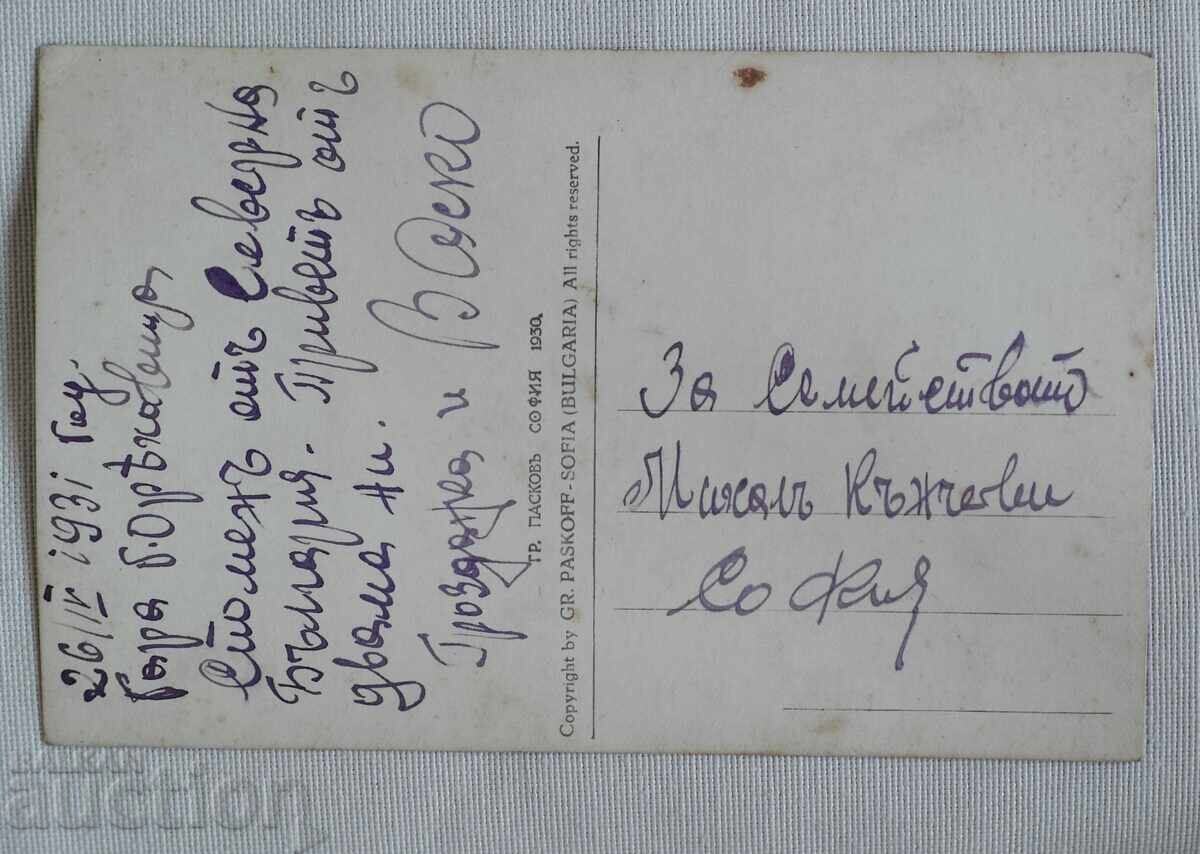 26/IV 1931 год.
Гара Г. Орѣховица
Споменъ отъ Северна
България. Приветъ отъ
двама ни.
Грозданка и Васко
ГР. ПАСКОВЪ СОФИЯ 1930.
Copyright by GR. PASKOFF-SOFIA (BULGARIA) All rights reserved.
За Семейството
Михалъ Кънчеви
София
BALKAN
auction